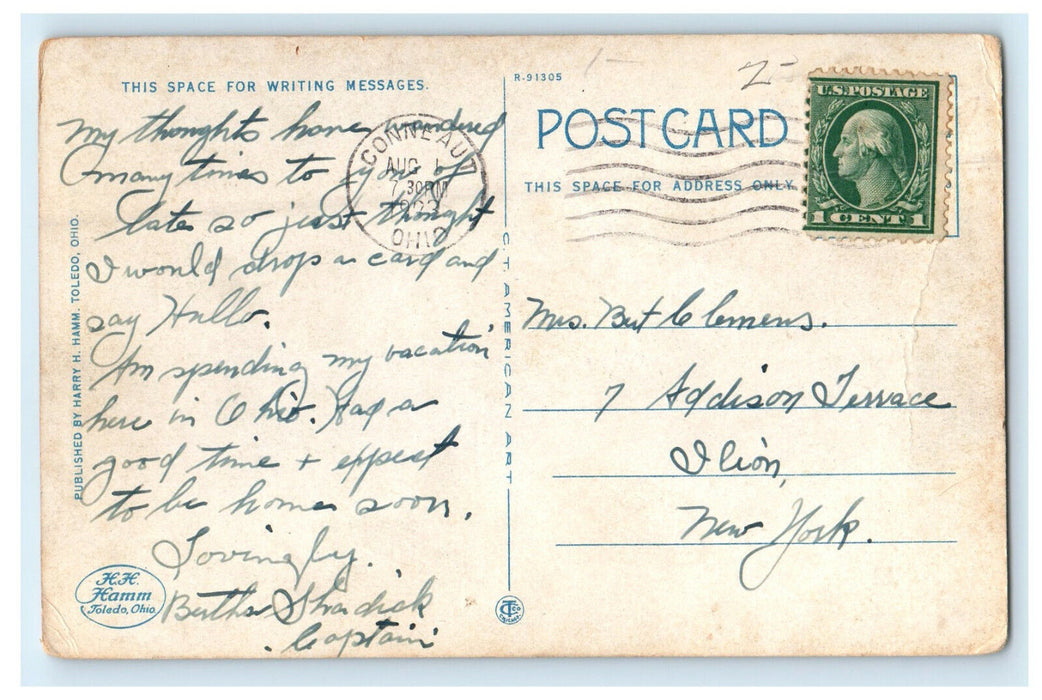 THIS SPACE FOR WRITING MESSAGES.
My thoughts have wandered
many times to you of
late so just thought
I would drop a card and
say Hello.
Am spending my vacation
here in Ohio. Had a
good time + expect
to be home soon.
Lovingly.
Bertha Shadick
Captain
PUBLISHED BY HARRY H. HAMM. TOLEDO, OHIO.
H.H.
Hamm
Toledo, Ohio
CONNEAUT
AUG 1
7 30PM
OHIO
C.T. AMERICAN ART
R-91305
2-
POST CARD
THIS SPACE FOR ADDRESS ONLY
U.S. POSTAGE
1 CENT 1
Mrs. Bert Clemens.
7 Addison Terrace
Ilion,
New York.